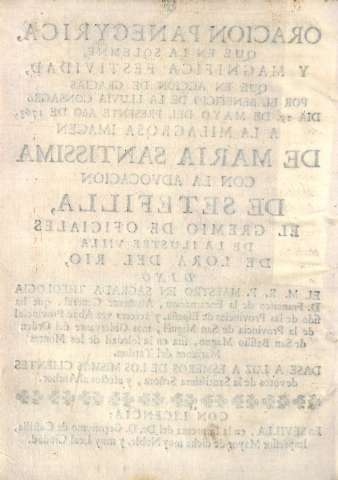 ORACION PANEGYRICA,
QUE EN LA SOLEMNE,
Y MAGNIFICA FESTIVIDAD,
QUE EN ACCION DE GRACIAS
POR EL BENEFICIO DE LA LLUVIA CONSAGRÒ
DIA 17. DE MAYO DEL PRESENTE AÑO DE
A LA MILAGROSA IMAGEN
DE MARIA SANTISSIMA
CON LA ADVOCACION
DE SETEFILLA,
EL GREMIO DE OFICIALES
DE LA ILUSTRE VILLA
DE LORA DEL RIO,
DIXO
EL M. R. P. MAESTRO EN SAGRADA THEOLOGIA
D. Francisco de la Encarnacion, General, que ha
sido de las Provincias de España, y Abad Provincial
de la Provincia de San Miguel, del Orden
de San Basilio Magno, sita en la soledad de los Montes
Marianos del Tardon.
DASE A LUZ A ESMEROS DE LOS MISMOS CLIENTES
devotos de la Santissima Señora, y afectos al Author.
CON LICENCIA:
En SEVILLA, en la Imprenta del Dr. D. Geronymo de Castilla,
Impressor Mayor de dicha muy Noble, y muy Leal Ciudad.